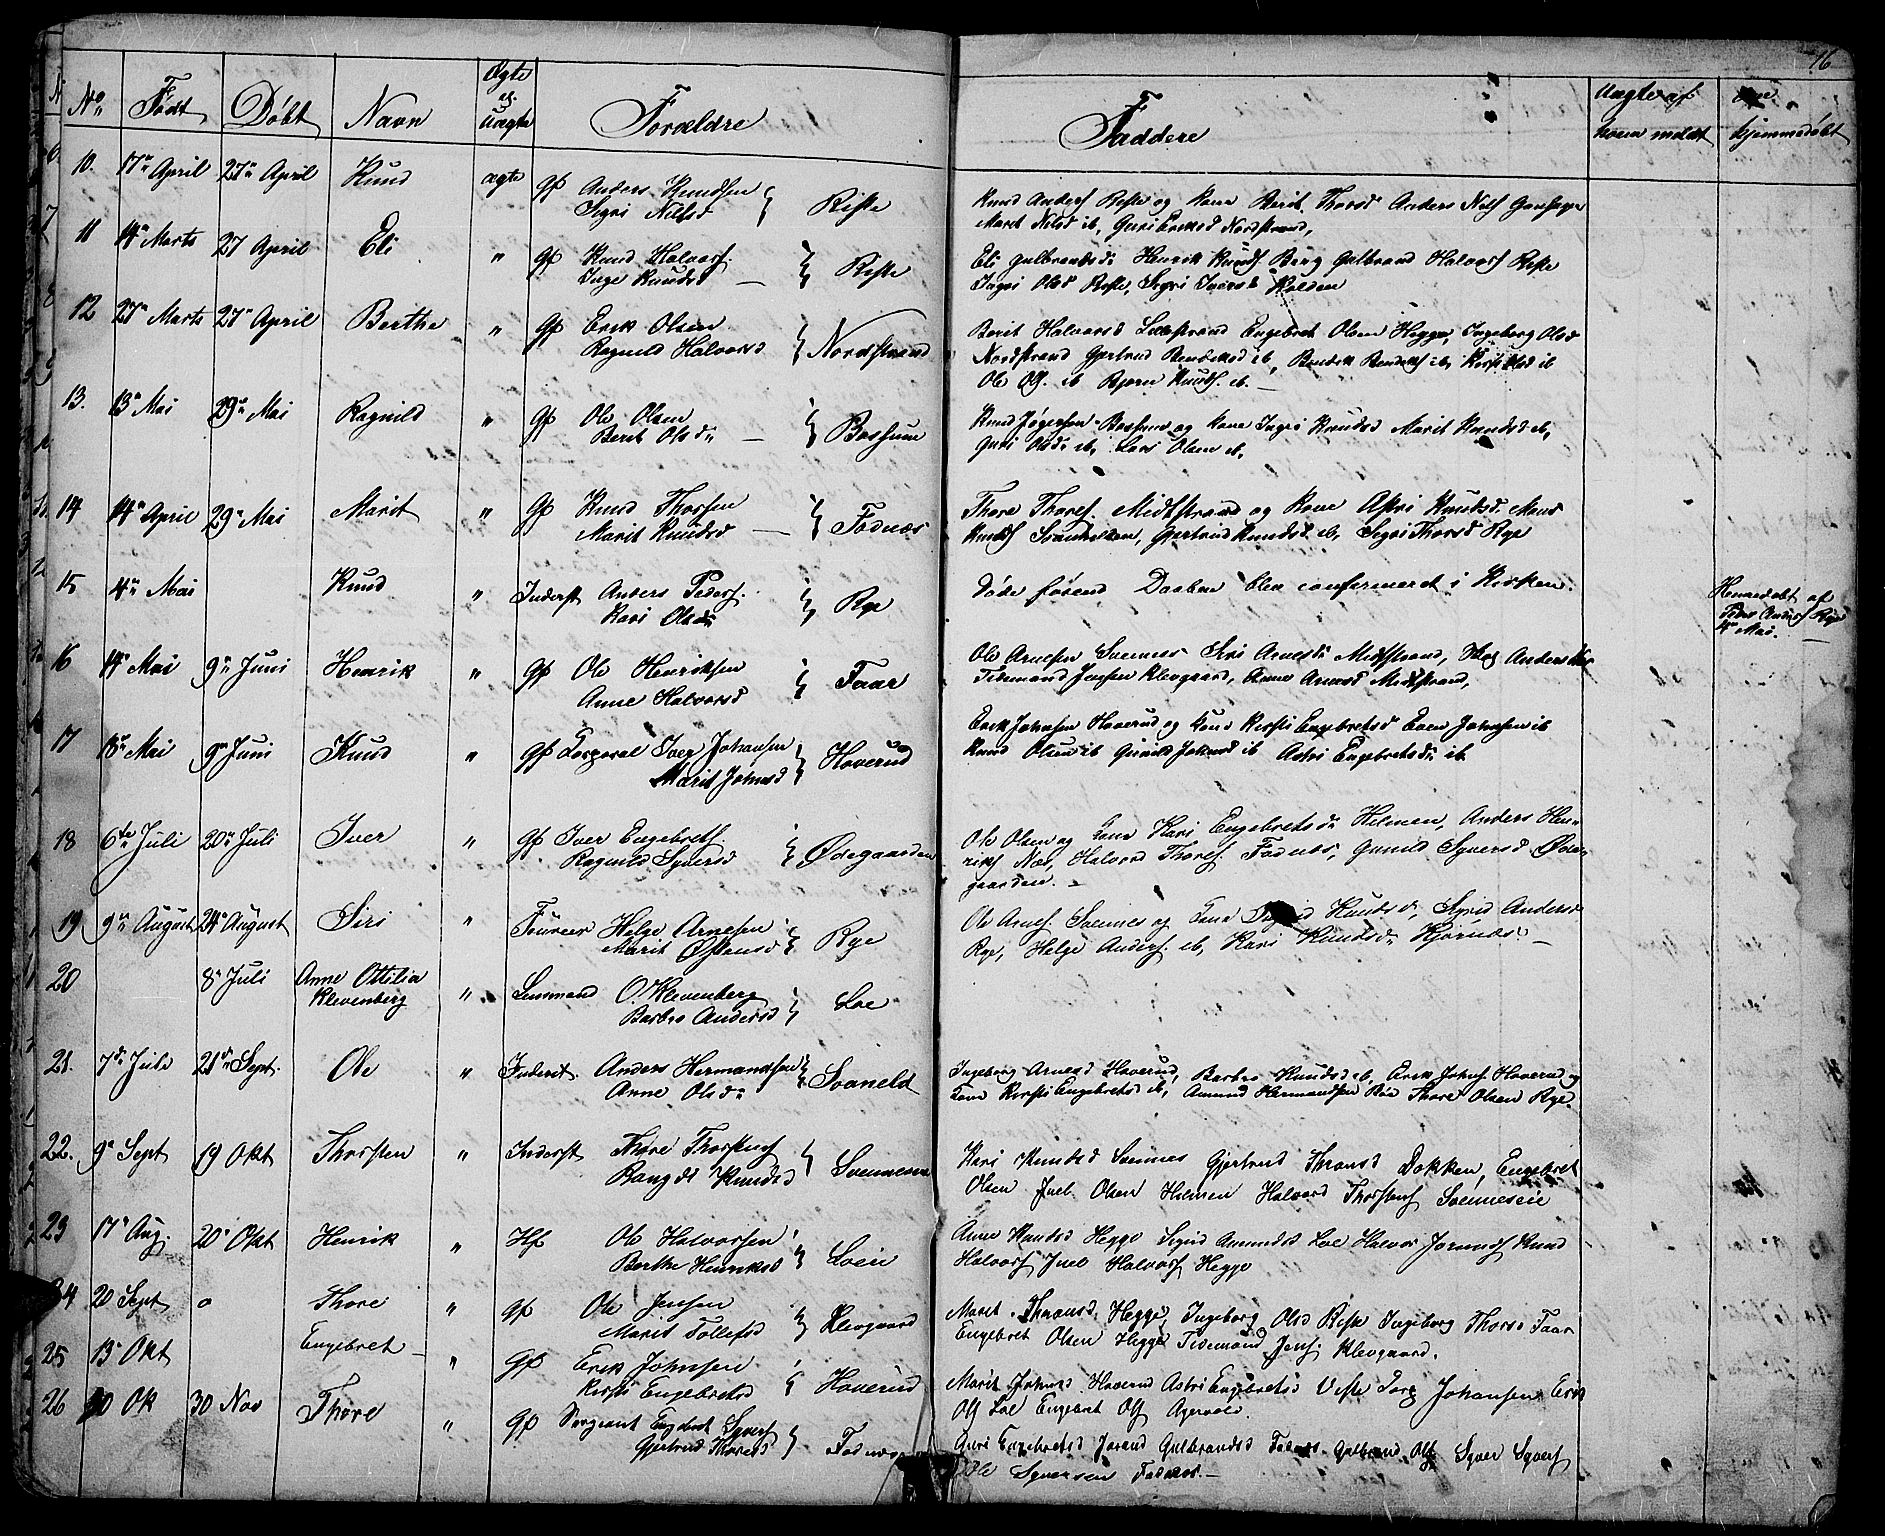 16
No Født Døbt Navn Ægte el. Uægte Forældre Faddere Uægte af hvem meldt hjemmedøbt
10. 17de April 27de April Knud ægte gf Anders Knudsen Sigri Nilsd Riste
Knud Anders Riste og kone Berit Thorsd Anders Nils
Marit Nilsd ib, Guri Nordstrand,
11 14de Marts 27 April Eli " gf Knud Halvors. Inge Knudsd Riste
Eli Gulbrandsd: Henrik Knuds Berg Gulbrand Halvors Riste
Ingri Olsd Riste, Sigri Iversd Holden
12 27de Marts 27de April Berthe " gf Erik Olsen Ragnild Halvorsd Nordstrand
Berit Halvorsd Engebret Olsen Hegge, Ingeborg Olsd
Nordstrand Gjertrud ib, ib, ib
Ole Ols. ib Bjørn Knuds. ib.
13. 13de Mai 29de Mai Ragnild " gf Ole Olsen Berit Olsd: Bossum
Knud Bossum og kone Ingri Knudsd Marit Knudsd ib,
Guri Olsd: ib, Lars Olsen ib,
14 14de April 29de Mai Marit " gf Knud Thorsen Marit Knudsd Fodnæs
Thore Thores. Midtstrand og Kone Astri Knudsd. Mons
Knuds Gjertrud Knudsd ib, Sigri Thorsd Rye
15 4de Mai Knud " Inderst Anders Peders. Kari Olsd: Rye
Døde førend Daaben blev confermeret i Kirken.
Hjemmedøbt af
Rye
4de Mai.
16 14de Mai 9de Juni Henrik " gf Ole Henriksen Anne Halvorsd Faar
Ole Arnesen Svennes Siri Arnesd: Midtstrand, Anders
Tidemand Jensen Klevgaard, Anne Arnesd Midtstrand,
17 18de Mai 9de Juni Knud " gf Corporal Iver Johansen Marit Johnsd Hoverud
Erik Johnsen Hoverud og kone Kirsti Engebretsd Even Johnsen ib
Knud Olsen ib Gunild Johnsd ib Astri Engebretsd: ib.
18 6te Juli 20de Juli Iver " gf Iver Engebrets Ragnild Syversd Ødegaarden
Ole Olsen og Kone Kari Engebretsd: Helmen, Anders Hen-
riks Næs, Halvord Thores. Fodnæs, Gunild Syversd Øde-
gaarden.
19 9de August 24de August Siri " Fourer Helge Arnesen Marit Østensd Rye
Ole Arnes Svennes og Kone Knudsd, Sigrid Andersd
Rye, Helge Anders. ib, Kari Knudsd: Kjørnæs.
20 8de Juli Anne Ottilia Klevenberg " Lensmand O. Klevenberg Barbro Andersd Loe
21. 7de Juli 21de Sept. Ole " Inderst. Anders Hermandsen Anne Olsd: Svaneld
Ingeborg Arnesd Hoverud, Barbro Knudsd ib, Erik Johns Hoverud og
Kone Kirsti Engebretsd ib, Amund Hermandsen Thore Olsen Rye.
22. 9de Sept 19 Okt Thorsten " Inderst Thore Thorstens Rangdi Knudsd Svenneseie
Kari Knudsd Svennes Gjertrud Thronsd Dokken, Engebret
Olsen Juel Olsen Helmen Halvord Thorstens Svenneseie
23 17de Aug. 20de Okt Henrik " Hf Ole Halvorsen Berthe Henriksd Loeie
Anne Knudsd Hegge Sigrid Amundsd Loe Halvor Knud
Halvors Juel Halvors Hegge
24 20 Sept o Thore " gf Ole Jensen Marit Tollefsd Klevgaard
Marit Thronsd. Hegge, Ingeborg Olsd Riste Ingeborg Thorsd Faar
Engebret Olsen Hegge Tidemand Jens. Klevgaard.
25 13de Okt Engebret " gf Erik Johnsen Kirsti Engebretsd Hoverud
Marit Johnsd Hoverud Astri Engebretsd Veste Johansen Erik
Ols Loe Engebret Ols
26 20 Ok 30 Nov Thore " gf Sergeant Engebret Syvers Gjertrud Thoresd Fodnæs
Guri Engebretsd Jorand Gulbrandsd Fodnæs Gulbrand Ols Syver Syvers
Ole Syversen Fodnæs.